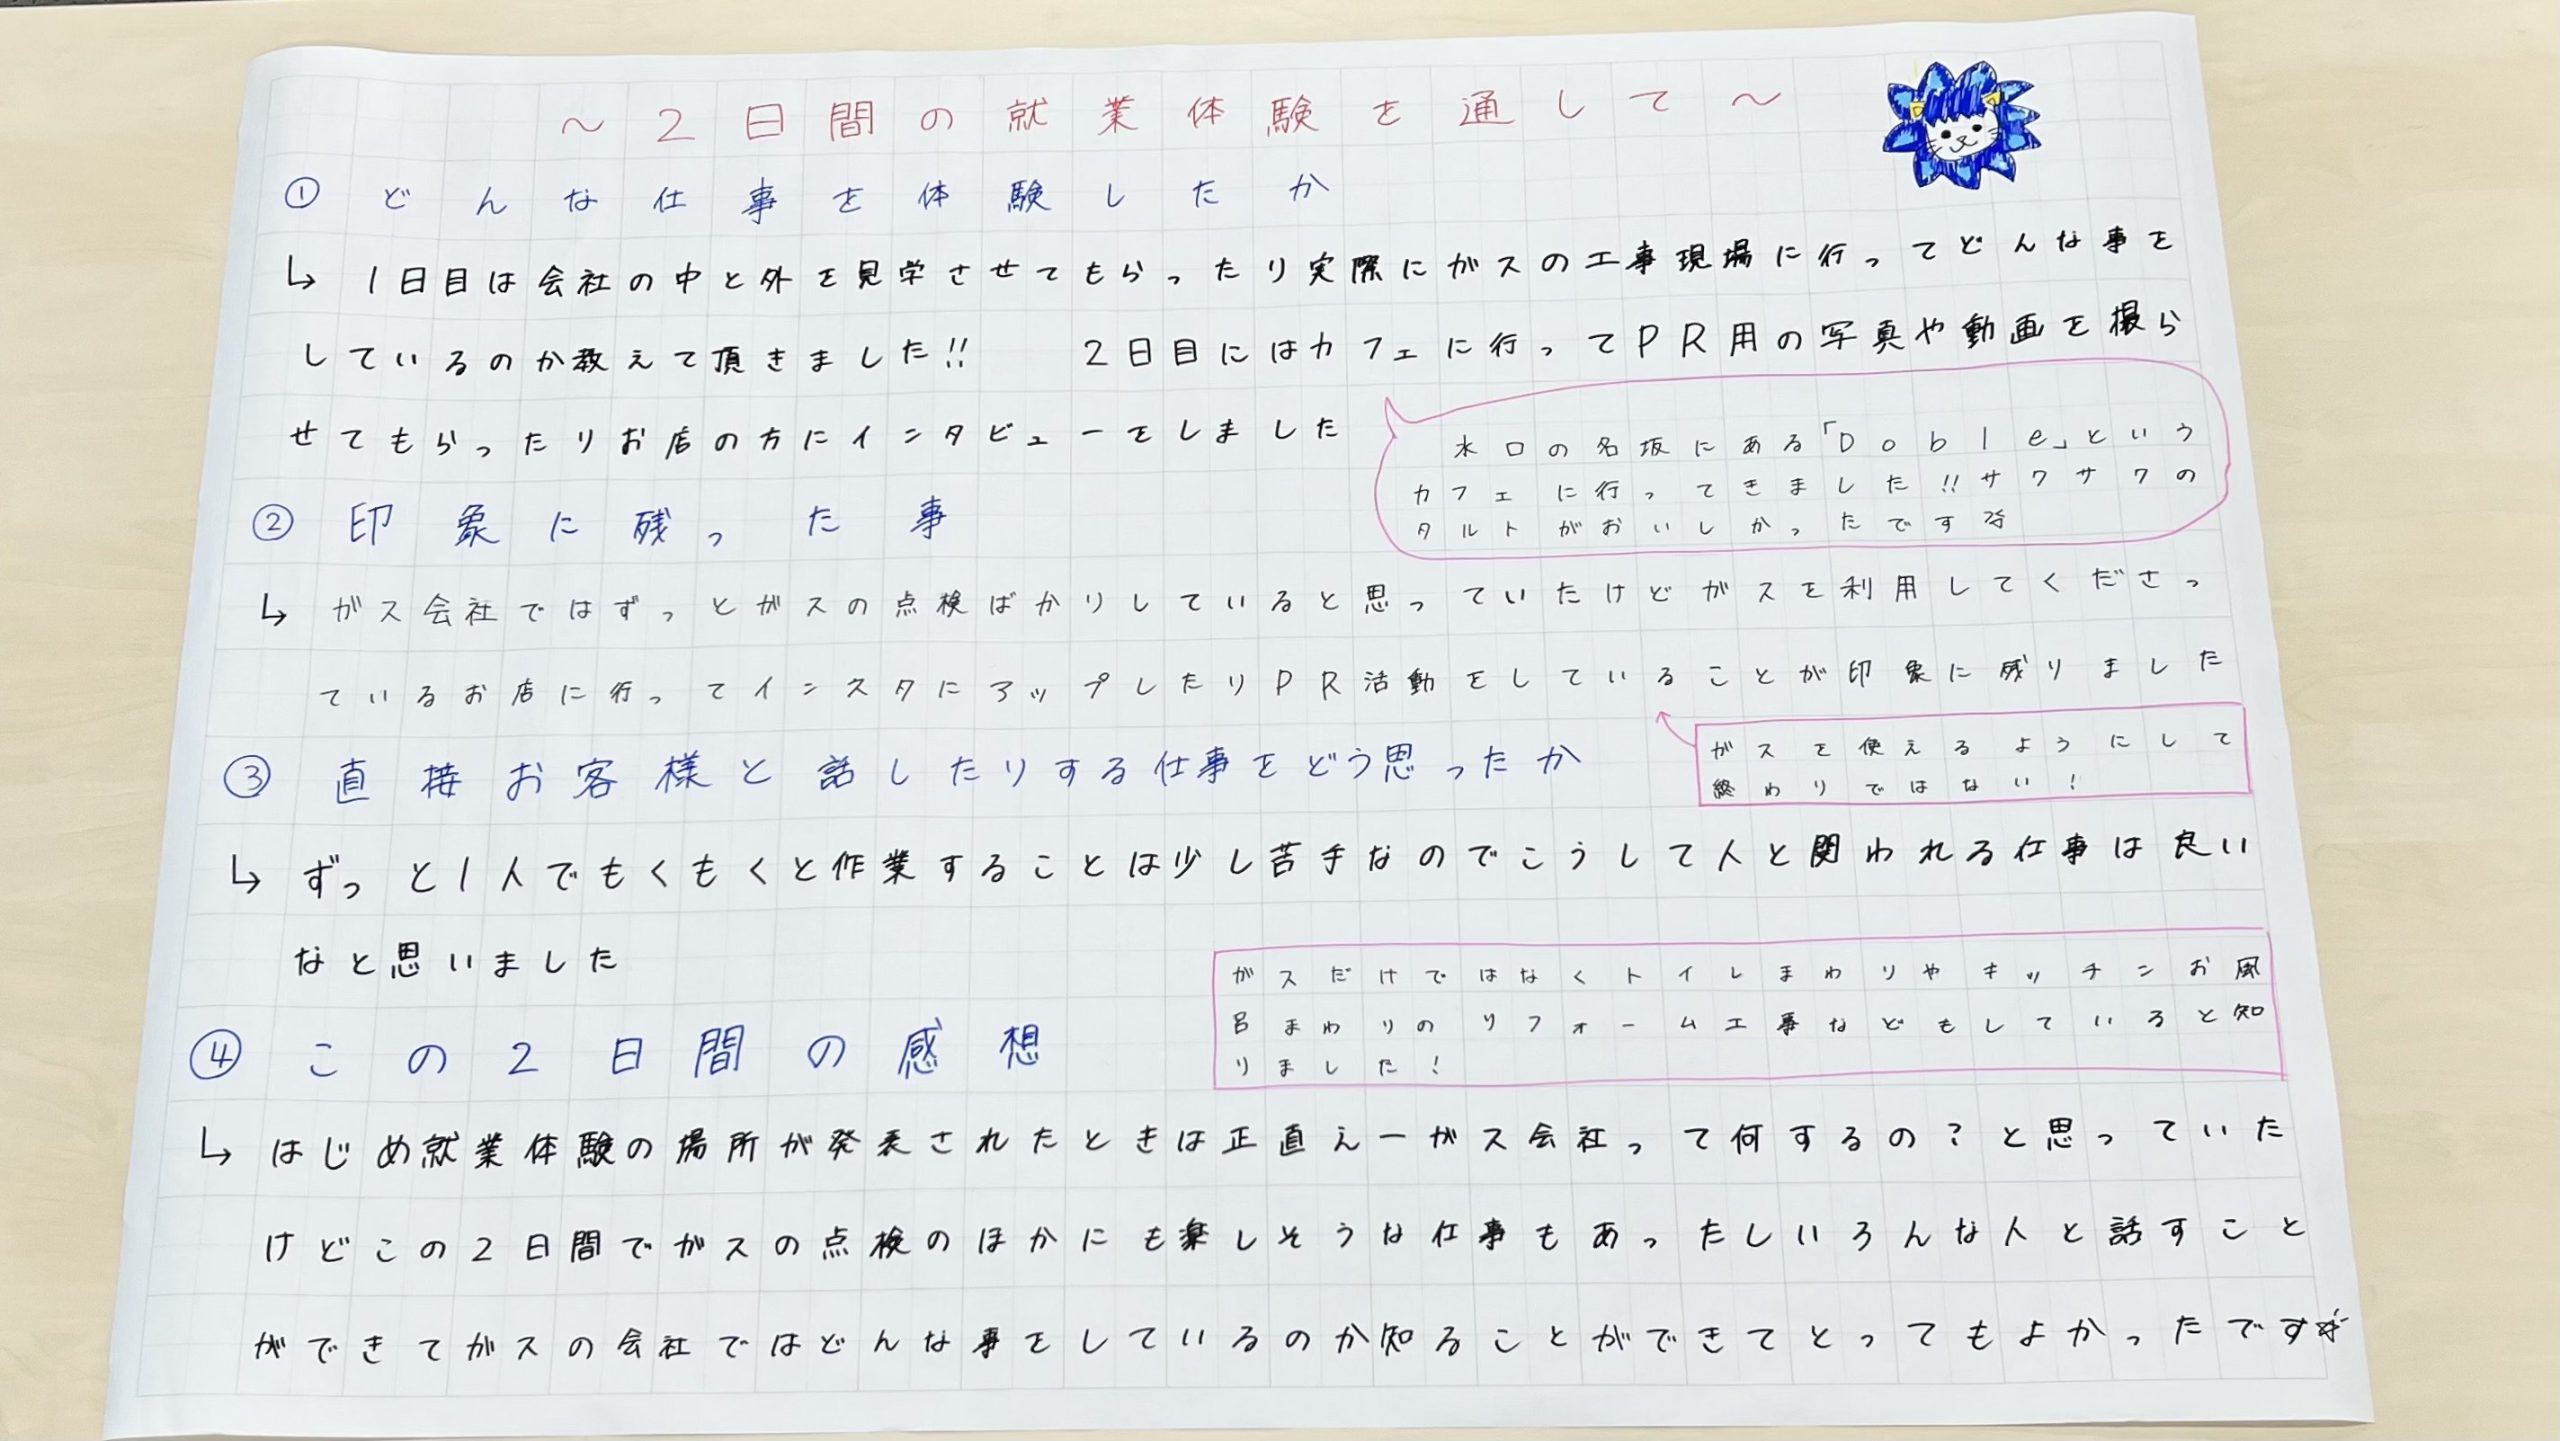 ～２日間の就業体験を通して～
① どんな仕事を体験したか
↳ １日目は会社の中と外を見学させてもらったり実際にガスの工事現場に行ってどんな事を
しているのか教えて頂きました!!　２日目にはカフェに行ってPR用の写真や動画を撮ら
せてもらったりお店の方にインタビューをしました
水口の名坂にある「Doble」という
カフェに行ってきました!!サクサクの
タルトがおいしかったです
② 印象に残った事
↳ ガス会社ではずっとガスの点検ばかりしていると思っていたけどガスを利用してくださっ
ているお店に行ってインスタにアップしたりPR活動をしていることが印象に残りました
ガスを使えるようにして
終わりではない！
③ 直接お客様と話したりする仕事をどう思ったか
↳ ずっと１人でもくもくと作業することは少し苦手なのでこうして人と関われる仕事は良い
なと思いました
ガスだけではなくトイレまわりやキッチンお風
呂まわりのリフォーム工事などもしていると知
りました！
④ この２日間の感想
↳ はじめ就業体験の場所が発表されたときは正直えーガス会社って何するの？と思っていた
けどこの２日間でガスの点検のほかにも楽しそうな仕事もあったしいろんな人と話すこと
ができてガスの会社ではどんな事をしているのか知ることができてとってもよかったです